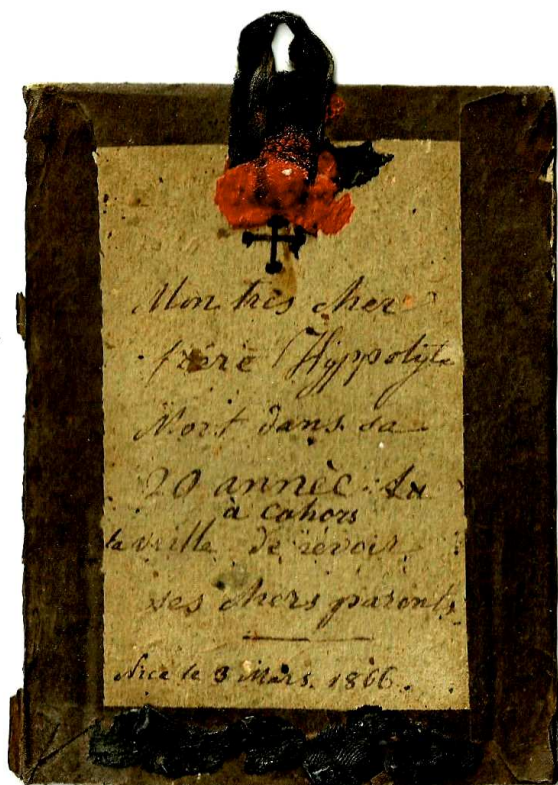 Mon très cher
frère Hyppolyte
Mort dans sa
20 annèe. La
à cahors
la veille de revoir
ses chers parents
Nice le 3 Mars. 1866.